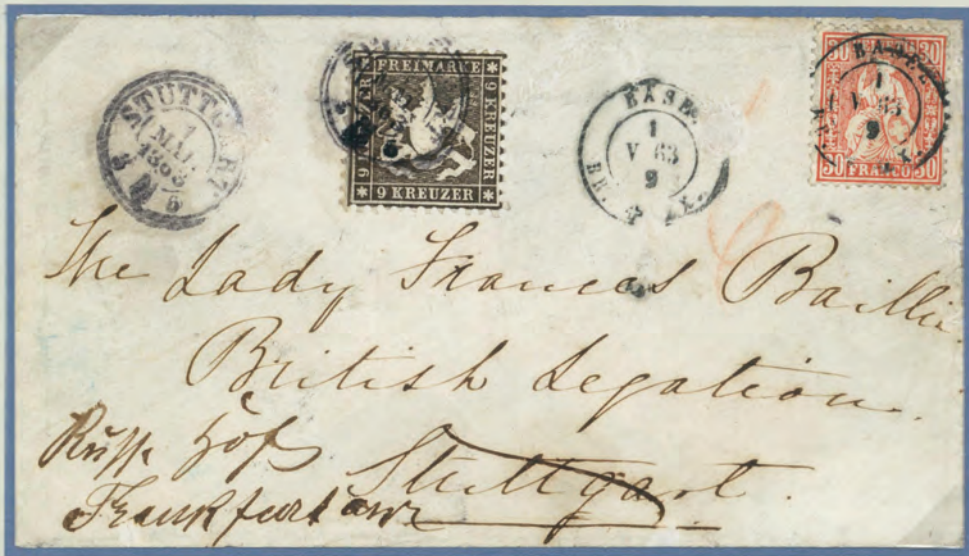 STUTTGART
1
MAI
1863
6
FREIMARKE
9 KREUZER
9 KREUZER
BASEL
1
V 63
9
30 30
BASEL
1
V 63
9
30 FRANCO 30
The Lady Frances Baillie
British Legation.
Stuttgart.
Russ. Hof
Frankfurt a/M